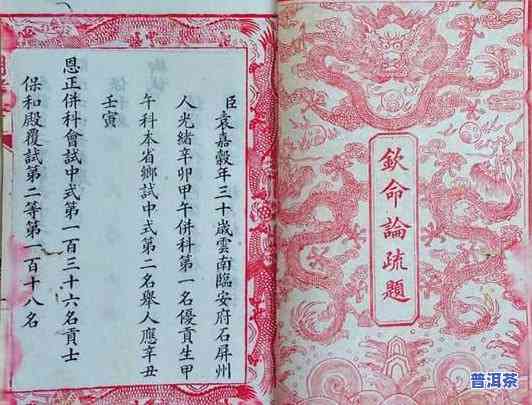 欽命論疏題
臣袁嘉穀年三十歲雲南臨安府石屏州
人光緒辛卯甲午併科第一名優貢生甲
午科本省鄉試中式第二名舉人應辛丑
壬寅
恩正併科會試中式第一百三十六名貢士
保和殿覆試第二等第一百十八名
普洱茶